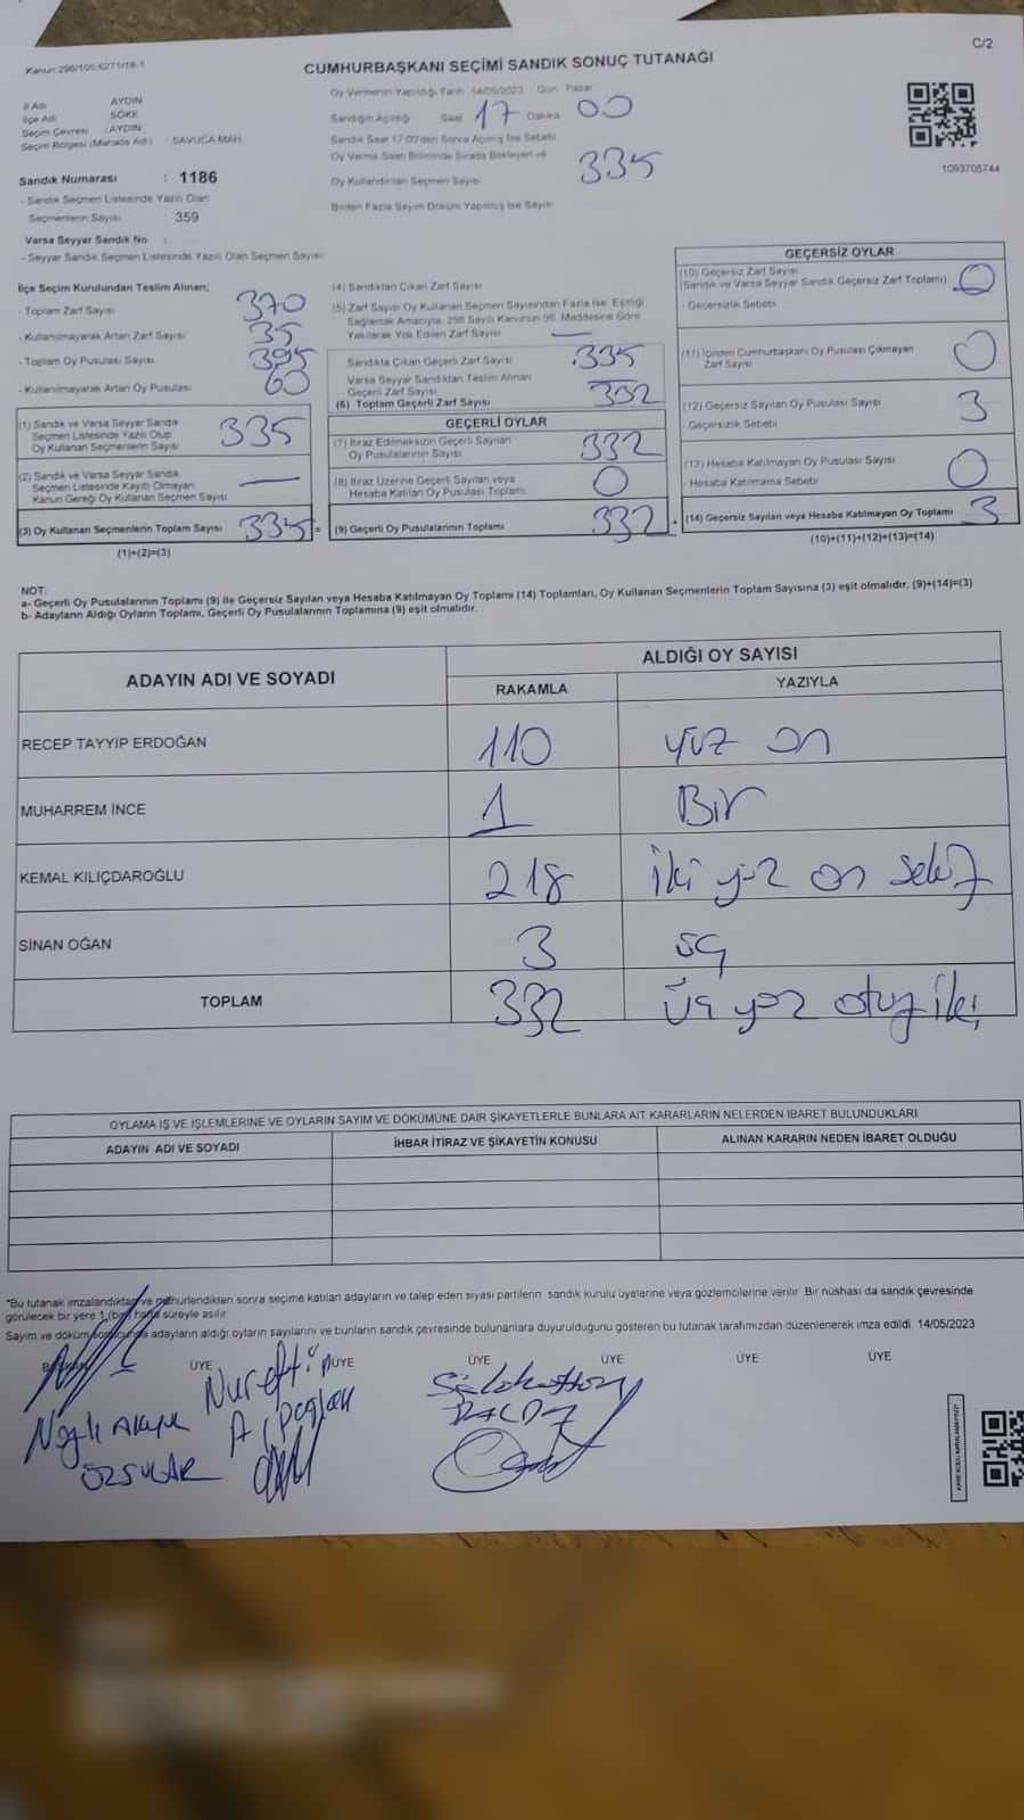 C/2
Kanun:298/105,6271/18-1
CUMHURBAŞKANI SEÇİMİ SANDIK SONUÇ TUTANAĞI
Oy Vermenin Yapıldığı Tarih 14/05/2023 Gün Pazar
İl Adı AYDIN
İlçe Adı SÖKE
Seçim Çevresi : AYDIN
Seçim Bölgesi (Mahalle Adı) : SAVUCA MAH.
Sandığın Açıldığı Saat 17 Dakika 00
Sandık Saat 17.00'den Sonra Açılmış İse Sebebi
Oy Verme Saati Bitiminde Sırada Bekleyen ve
Oy Kullandırılan Seçmen Sayısı 335
Birden Fazla Sayım Döküm Yapılmış İse Sayısı
1093705744
Sandık Numarası : 1186
- Sandık Seçmen Listesinde Yazılı Olan
Seçmenlerin Sayısı 359
Varsa Seyyar Sandık No :
- Seyyar Sandık Seçmen Listesinde Yazılı Olan Seçmen Sayısı
İlçe Seçim Kurulundan Teslim Alınan;
- Toplam Zarf Sayısı 370
- Kullanılmayarak Artan Zarf Sayısı 35
- Toplam Oy Pusulası Sayısı 395
- Kullanılmayarak Artan Oy Pusulası 60
(1) Sandık ve Varsa Seyyar Sandık
Seçmen Listesinde Yazılı Olup
Oy Kullanan Seçmenlerin Sayısı 335
(2) Sandık ve Varsa Seyyar Sandık
Seçmen Listesinde Kayıtlı Olmayan
Kanun Gereği Oy Kullanan Seçmen Sayısı —
(3) Oy Kullanan Seçmenlerin Toplam Sayısı 335 =
(1)+(2)=(3)
(4) Sandıktan Çıkan Zarf Sayısı
(5) Zarf Sayısı Oy Kullanan Seçmen Sayısından Fazla İse, Eşitliği
Sağlamak Amacıyla, 298 Sayılı Kanunun 98. Maddesine Göre
Yakılarak Yok Edilen Zarf Sayısı —
Sandıkta Çıkan Geçerli Zarf Sayısı 335
Varsa Seyyar Sandıktan Teslim Alınan
Geçerli Zarf Sayısı
(6) Toplam Geçerli Zarf Sayısı 332
GEÇERLİ OYLAR
(7) İtiraz Edilmeksizin Geçerli Sayılan
Oy Pusulalarının Sayısı 332
(8) İtiraz Üzerine Geçerli Sayılan veya
Hesaba Katılan Oy Pusulası Toplamı 0
(9) Geçerli Oy Pusulalarının Toplamı 332 +
GEÇERSİZ OYLAR
(10) Geçersiz Zarf Sayısı
(Sandık ve Varsa Seyyar Sandık Geçersiz Zarf Toplamı) 0
- Geçersizlik Sebebi
(11) İçinden Cumhurbaşkanı Oy Pusulası Çıkmayan
Zarf Sayısı 0
(12) Geçersiz Sayılan Oy Pusulası Sayısı 3
- Geçersizlik Sebebi
(13) Hesaba Katılmayan Oy Pusulası Sayısı 0
- Hesaba Katılmama Sebebi
(14) Geçersiz Sayılan veya Hesaba Katılmayan Oy Toplamı 3
(10)+(11)+(12)+(13)=(14)
NOT:
a- Geçerli Oy Pusulalarının Toplamı (9) ile Geçersiz Sayılan veya Hesaba Katılmayan Oy Toplamı (14) Toplamları, Oy Kullanan Seçmenlerin Toplam Sayısına (3) eşit olmalıdır, (9)+(14)=(3)
b- Adayların Aldığı Oyların Toplamı, Geçerli Oy Pusulalarının Toplamına (9) eşit olmalıdır.
ADAYIN ADI VE SOYADI
ALDIĞI OY SAYISI
RAKAMLA YAZIYLA
RECEP TAYYİP ERDOĞAN 110 yüz on
MUHARREM İNCE 1 Bir
KEMAL KILIÇDAROĞLU 218 iki yüz on sekiz
SİNAN OĞAN 3 üç
TOPLAM 332 Üç yüz otuz iki
OYLAMA İŞ VE İŞLEMLERİNE VE OYLARIN SAYIM VE DÖKÜMÜNE DAİR ŞİKAYETLERLE BUNLARA AİT KARARLARIN NELERDEN İBARET BULUNDUKLARI
ADAYIN ADI VE SOYADI İHBAR İTİRAZ VE ŞİKAYETİN KONUSU ALINAN KARARIN NEDEN İBARET OLDUĞU
*Bu tutanak imzalandıktan ve mühürlendikten sonra seçime katılan adayların ve talep eden siyasi partilerin sandık kurulu üyelerine veya gözlemcilerine verilir. Bir nüshası da sandık çevresinde
görülecek bir yere 1 (bir) hafta süreyle asılır
Sayım ve döküm sonucunda adayların aldığı oyların sayılarını ve bunların sandık çevresinde bulunanlara duyurulduğunu gösteren bu tutanak tarafımızdan düzenlenerek imza edildi. 14/05/2023
BAŞKAN ÜYE ÜYE ÜYE ÜYE ÜYE ÜYE
Nurettin
ÖZSULAR